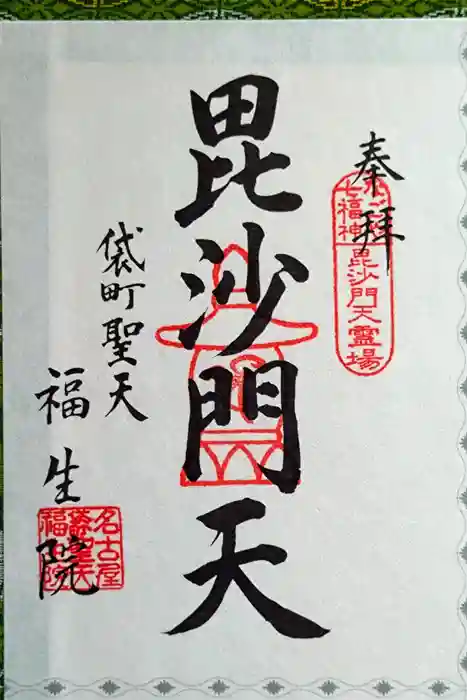 奉拝
七福神
毘沙門天霊場
毘沙門天
袋町聖天
福生院
名古屋